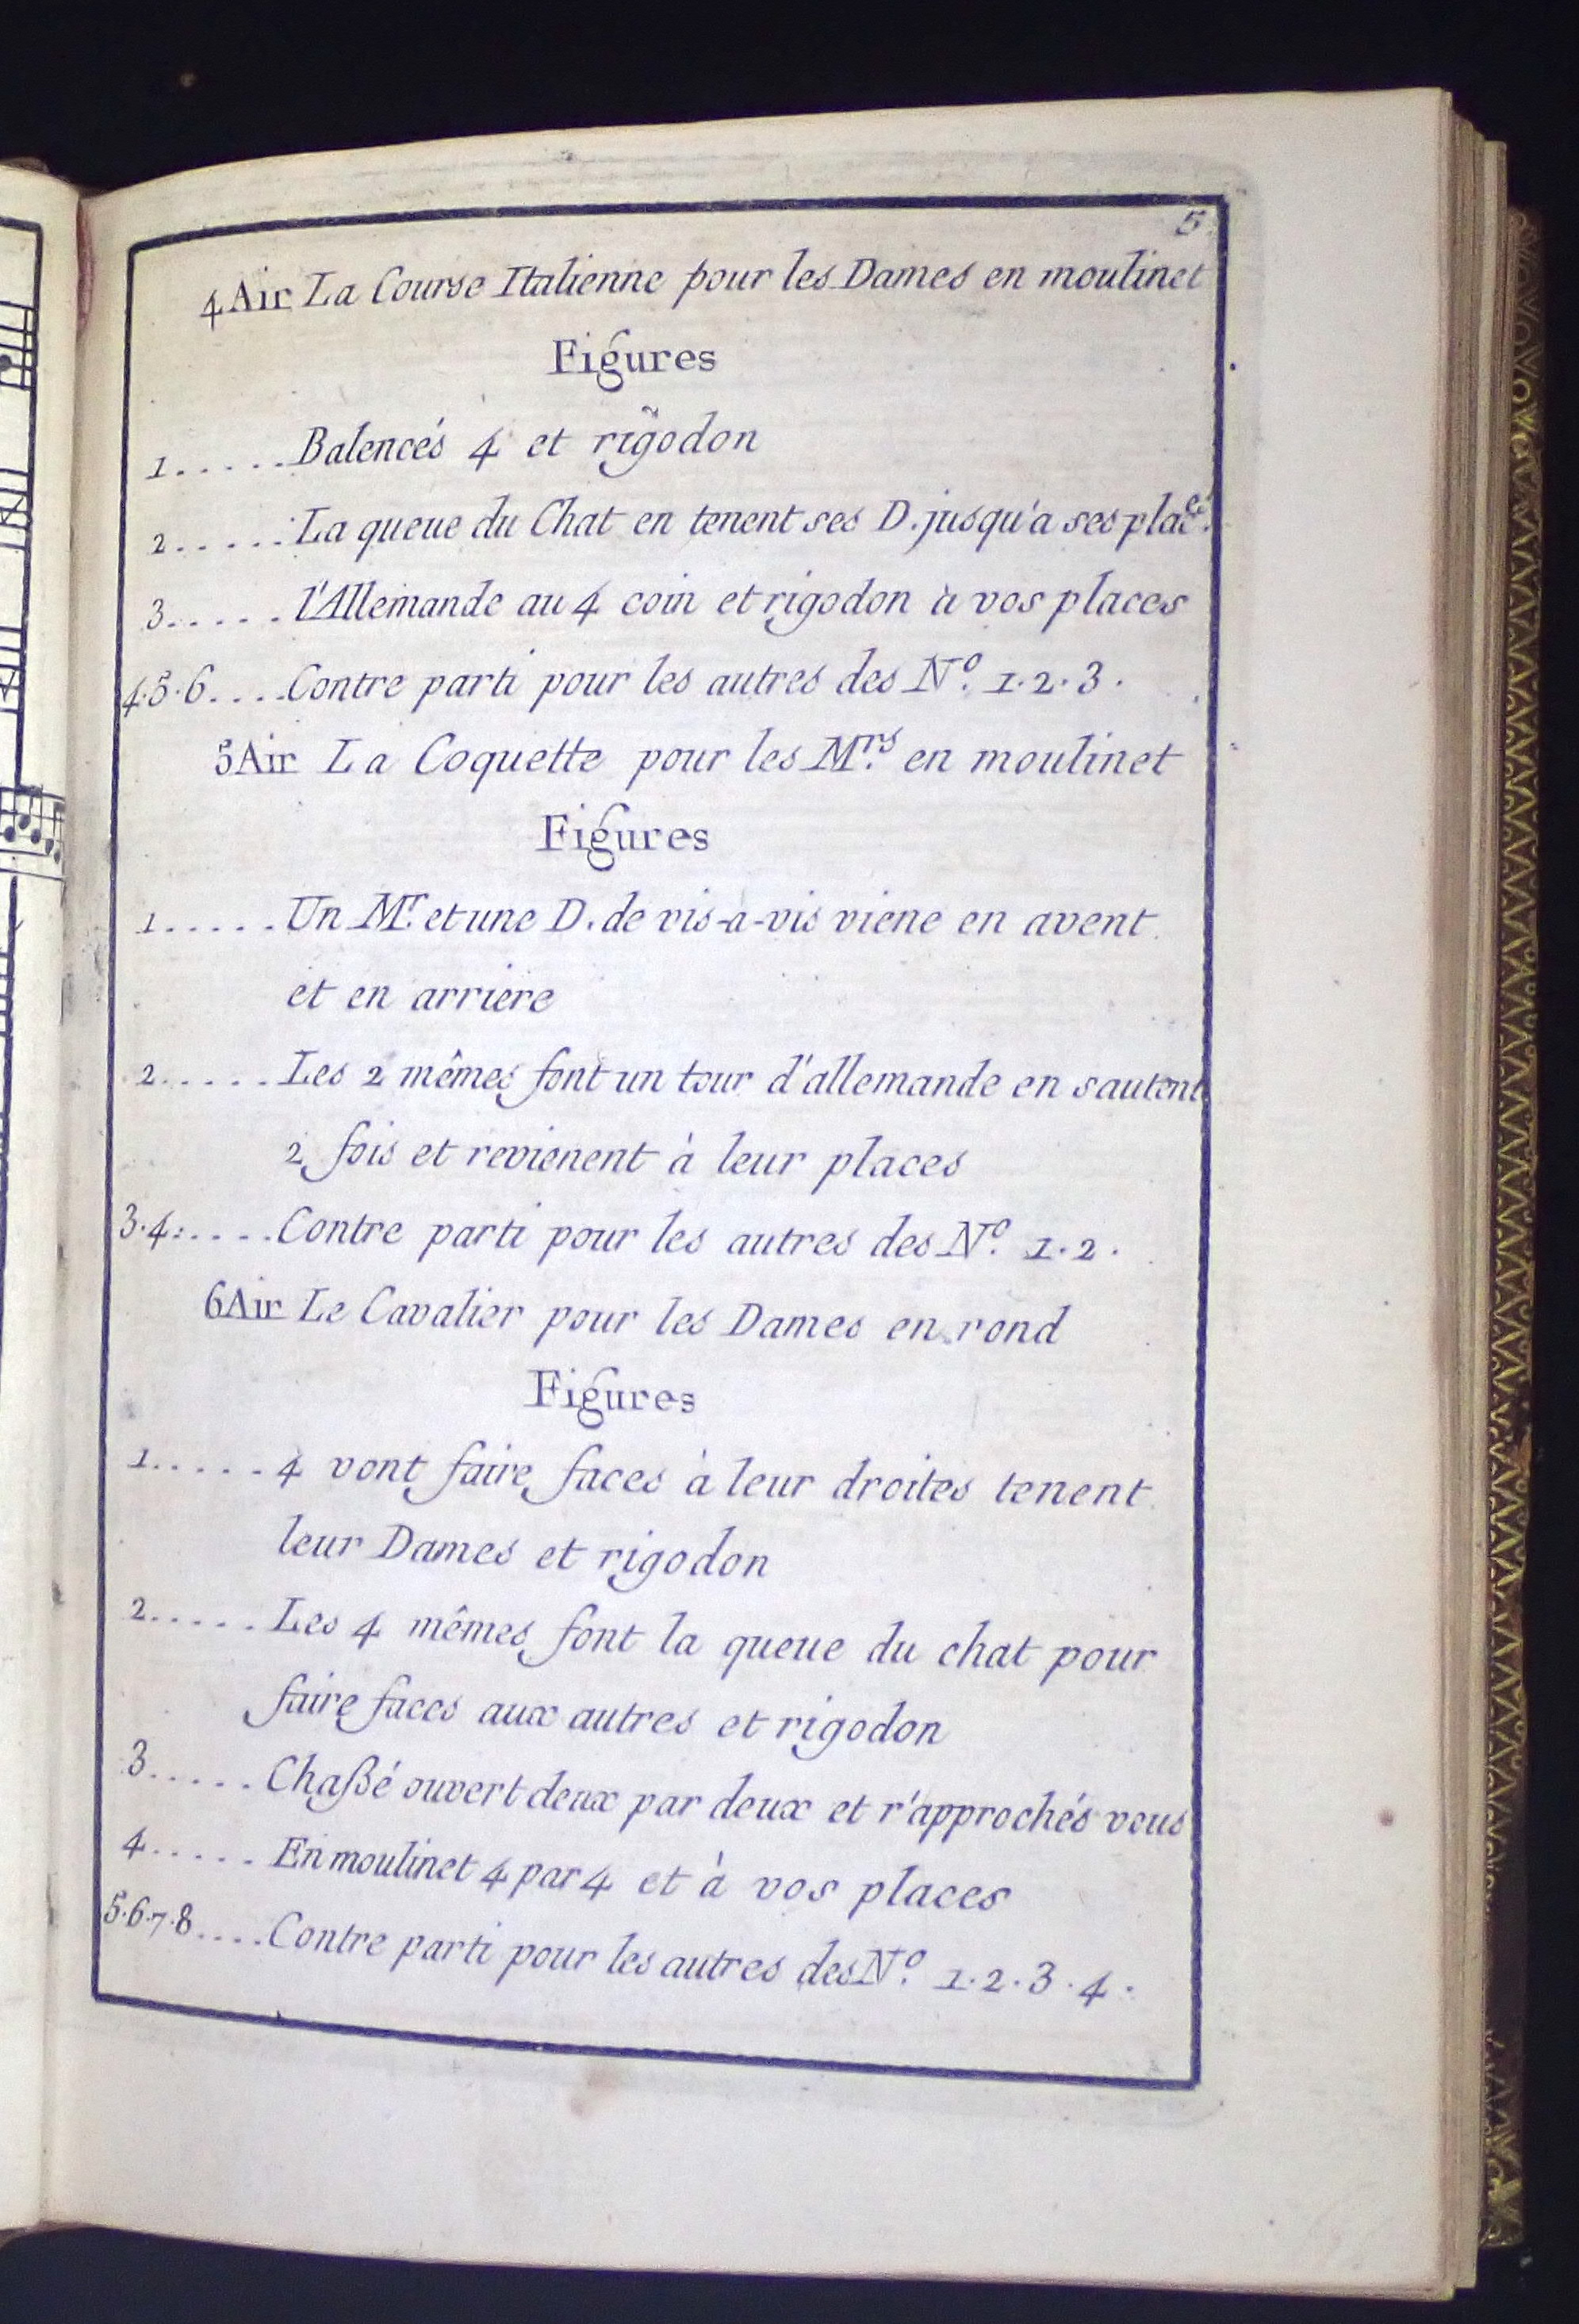 5
4 Air La Course Italienne pour les Dames en moulinet
Figures
1.....Balencés 4 et rigodon
2.....La queue du Chat en tenent ses D. jusqu'a ses place.
3.....l'Allemande au 4 coin et rigodon à vos places
4.5.6....Contre parti pour les autres des No. 1.2.3.
5 Air La Coquette pour les Mrs. en moulinet
Figures
1.....Un Mr. et une D. de vis-à-vis viene en avent
et en arriere
2.....Les 2 mêmes font un tour d'allemande en sautent
2 fois et revienent à leur places
3.4.....Contre parti pour les autres des No. 1.2.
6 Air Le Cavalier pour les Dames en rond
Figures
1.....4 vont faire faces à leur droites tenent
leur Dames et rigodon
2.....Les 4 mêmes font la queue du chat pour
faire faces aux autres et rigodon
3.....Chaßé ouvert deux par deux et r'approchés vous
4.....En moulinet 4 par 4 et à vos places
5.6.7.8....Contre parti pour les autres des No. 1.2.3.4.